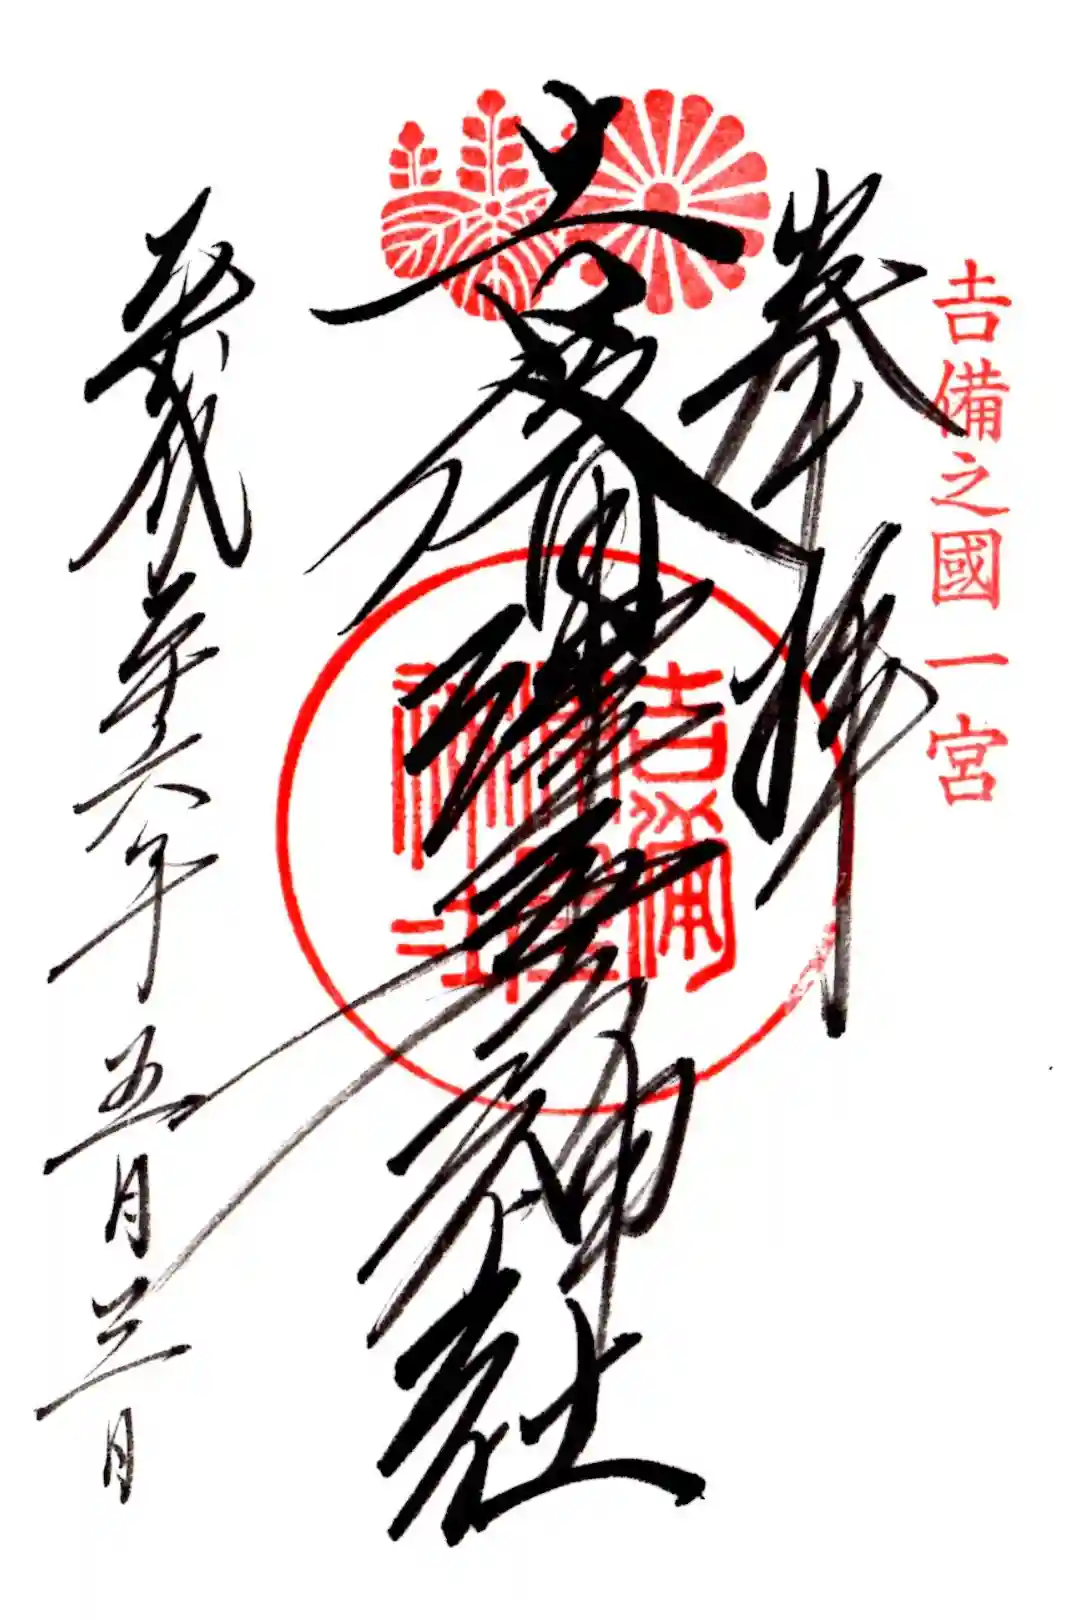 吉備之國一宮
奉拝
吉備津彦神社
吉備
津彦
神社
平成二十六年五月三日